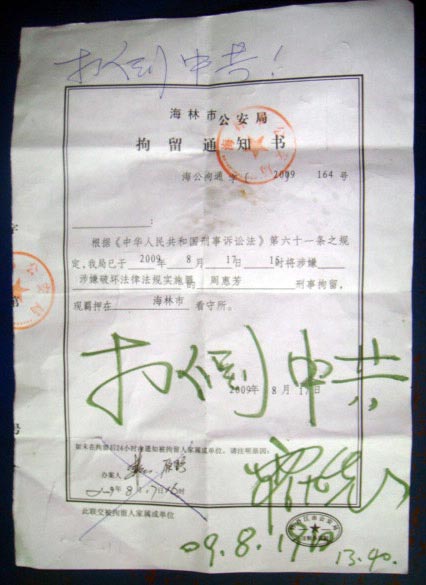 打倒中共！
海林市公安局
拘留通知书
海公拘通字〔2009〕164号
：
根据《中华人民共和国刑事诉讼法》第六十一条之规
定，我局已于2009年8月17日15时将涉嫌
涉嫌破坏法律法规实施罪的周惠芳刑事拘留，
现羁押在海林市看守所。
打倒中共
2009年8月17日
如未在拘留后24小时内通知被拘留人家属或单位，请注明原因：
办案人
此联交被拘留人家属或单位
09.8.19日
13.40.